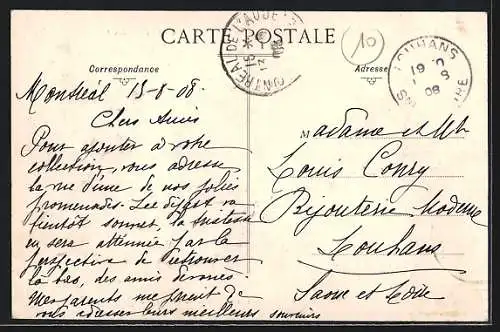 CARTE POSTALE
Correspondance
Adresse
Montréal 15-8-08.
Chers Amis
Pour ajouter à votre
collection, vous adresse
la vue d'une de nos jolies
promenades. Le départ va
bientôt sonner, la tristesse
en sera atténuée par la
perspective de retrouver
là bas, des amis dévoués.
Mes parents me prient de
vos adresser leurs meilleurs souvenirs
Madame et Mr
Louis Conry
Bijouterie Moderne
Louhans
Saône et Loire
MONTRÉAL DE L'AUDE
15
LOUHANS
LOIRE
19
08
10